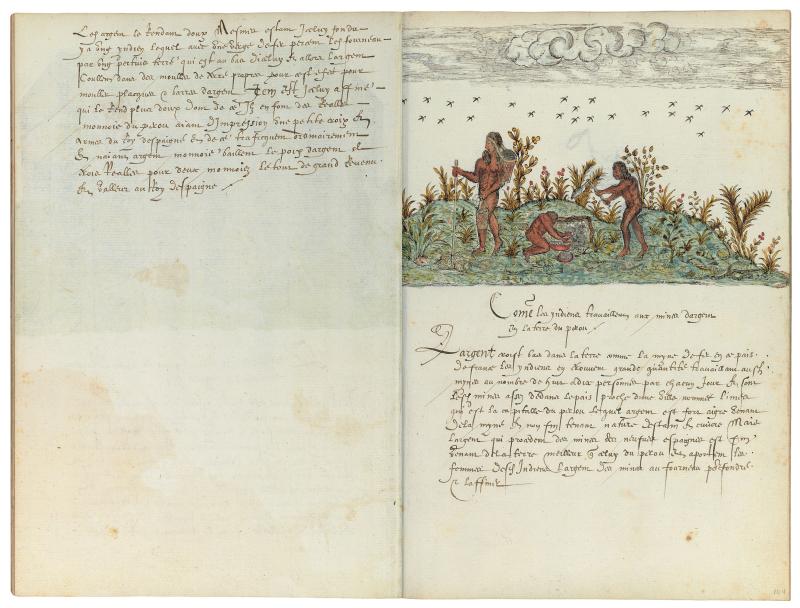 Les argem le rendant doux Mesmes estant Jceluy fondu
y a ung yndien lequel avec une verge de fer percent les fourneau
par ung pertuis ferré qui est au bas d'iceluy & allera largem
Coullera dans des moulles de terre propres pour cest effet pour
mouller placques & barres dargem Item est Jceluy affiné
qui le rend plus doux dont de ce Jlz en font des Realles
monnoie du perou aiant d'Impression une petite croix &
Armes du Roy despaigne & de ce trafficquent ordinairement
& naiant argem monnoie baillent le poix dargem de
Realles pour deux monnoiez le tout de grand Revenu
& valleur au Roy despaigne
Come les yndiens travaillent aux mines dargem
en la terre du perou
Largent croist bas dans la terre comme la myne de fer en ce pais
de france les yndiens en trouvent grande quantité travaillant ausd
mynes au nombre de huit a dix personnes par chacun Jour & sont
lesd mines assez dedans le pais proche dune ville nommee limea
qui est la capitalle du perou lequel argem est fort aigre venant
de la myne & non fin tenant nature destain & cuivre Mais
largem qui procedent des mines des neufves espaignes est fin
venant de la terre meilleur q celuy du perou & aportent les
femmes desd Indiens largem des mines au fourneau po' fondre
& laffiner
104